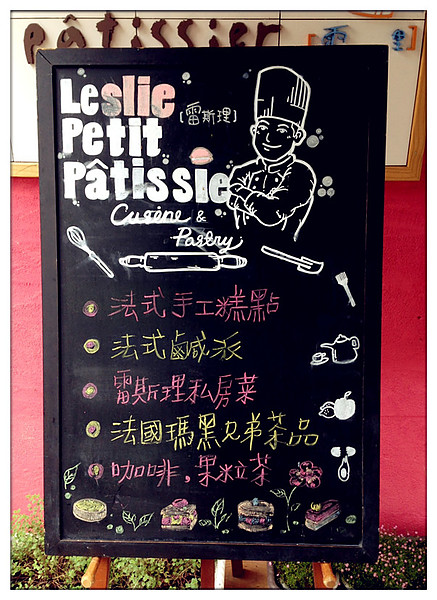 pâtissier [雷里]
Leslie
[雷斯理]
Petit
Pâtissie
Cuisine &
Pastry
法式手工糕點
法式鹹派
雷斯理私房菜
法國瑪黑兄弟茶品
咖啡,果粒茶